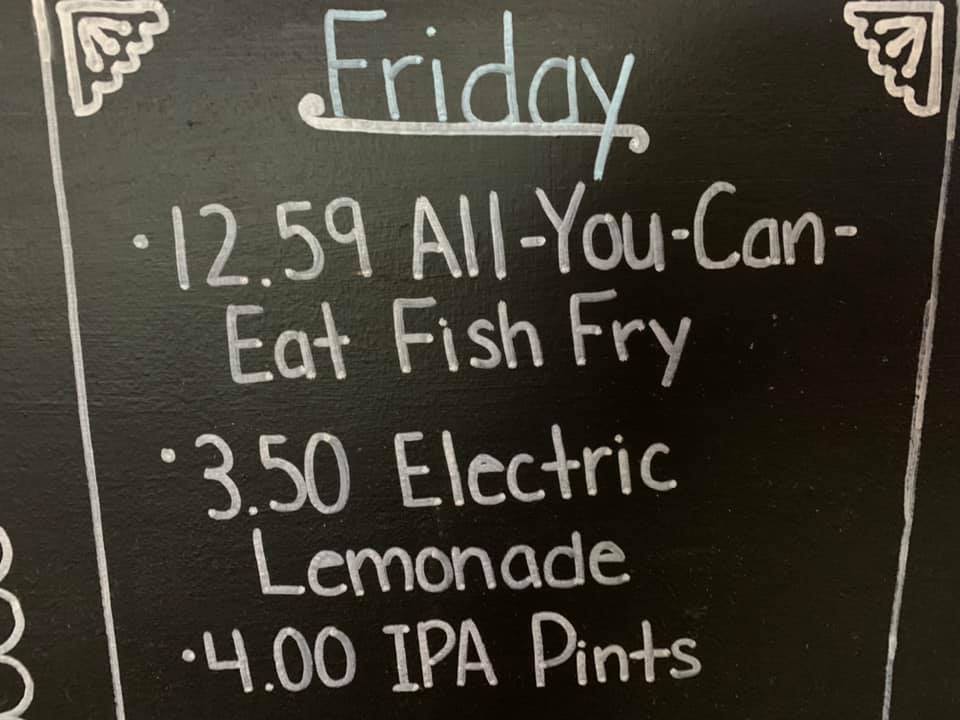 Friday
·12.59 All-You-Can-
Eat Fish Fry
·3.50 Electric
Lemonade
·4.00 IPA Pints